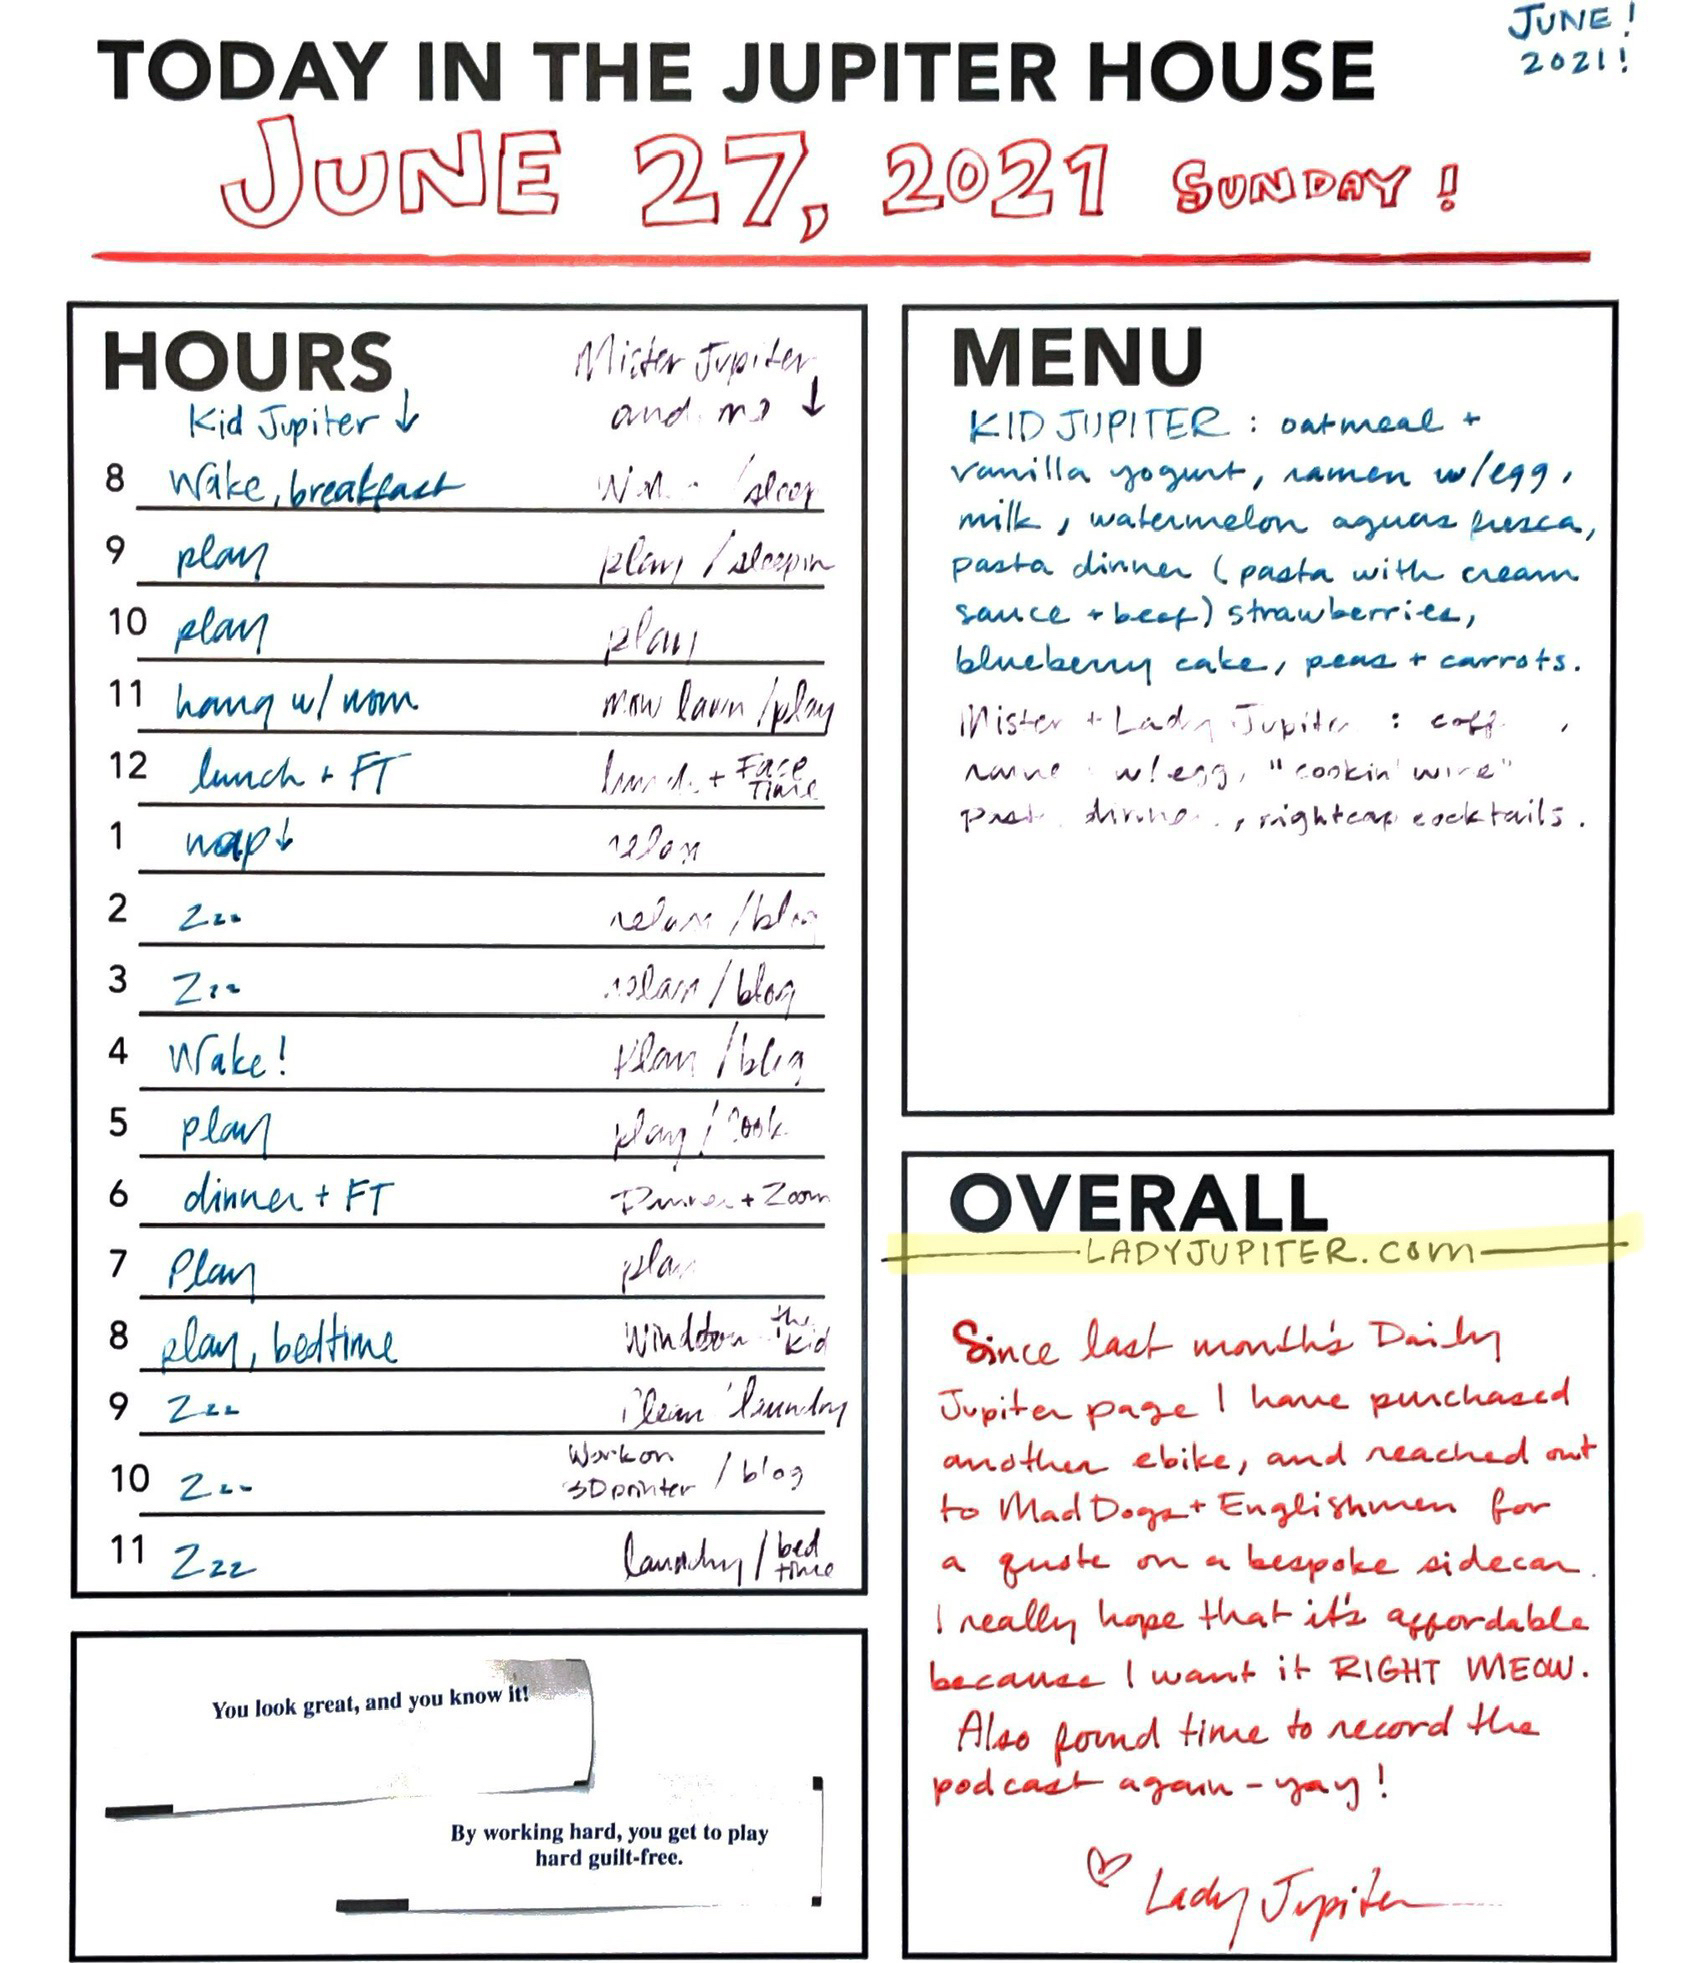 JUNE!
2021!
TODAY IN THE JUPITER HOUSE
JUNE 27, 2021 SUNDAY!
HOURS
Mister Jupiter
and me ↓
Kid Jupiter ↓
8 Wake, breakfast /sleep
9 play play / sleepin
10 play play
11 hang w/ mom mow lawn /play
12 lunch + FT lunch + Face Time
1 nap↓ relax
2 Zzz relax /blog
3 Zzz relax /blog
4 Wake! /blog
5 play play / cook
6 dinner + FT Dinner + Zoom
7 Play play
8 play, bedtime Winddown the kid
9 Zzz clean laundry
10 Zzz Work on 3D printer / blog
11 Zzz laundry / bed time
You look great, and you know it!
By working hard, you get to play
hard guilt-free.
MENU
KID JUPITER : oatmeal +
vanilla yogurt, ramen w/egg,
milk, watermelon aguas fresca,
pasta dinner (pasta with cream
sauce + beef) strawberries,
blueberry cake, peas + carrots.
Mister + Lady Jupiter : coff ,
w/egg, "cookin' wine"
dinner , nightcap cocktails.
OVERALL
LADYJUPITER.com
Since last month's Daily
Jupiter page I have purchased
another ebike, and reached out
to Mad Dogs + Englishmen for
a quote on a bespoke sidecar.
I really hope that it's affordable
because I want it RIGHT MEOW.
Also found time to record the
podcast again - yay!
♡ Lady Jupiter